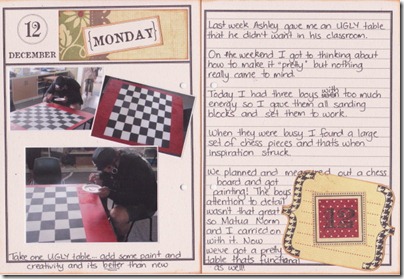 12
DECEMBER
MONDAY
Take one UGLY table - add some paint and
creativity and its better than new
Last week Ashley gave me an UGLY table
that he didn't want in his classroom.
On the weekend I got to thinking about
how to make it "pretty" but nothing
really came to mind.
Today I had three boys with too much
energy so I gave them all sanding
blocks and set them to work.
When they were busy I found a large
set of chess pieces and thats when
inspiration struck.
We planned and measured out a chess
board and got
painting! The boys
attention to detail
wasn't that great
so Matua Norm
and I carried on
with it. Now
we've got a pretty
table thats functional
as well!
12